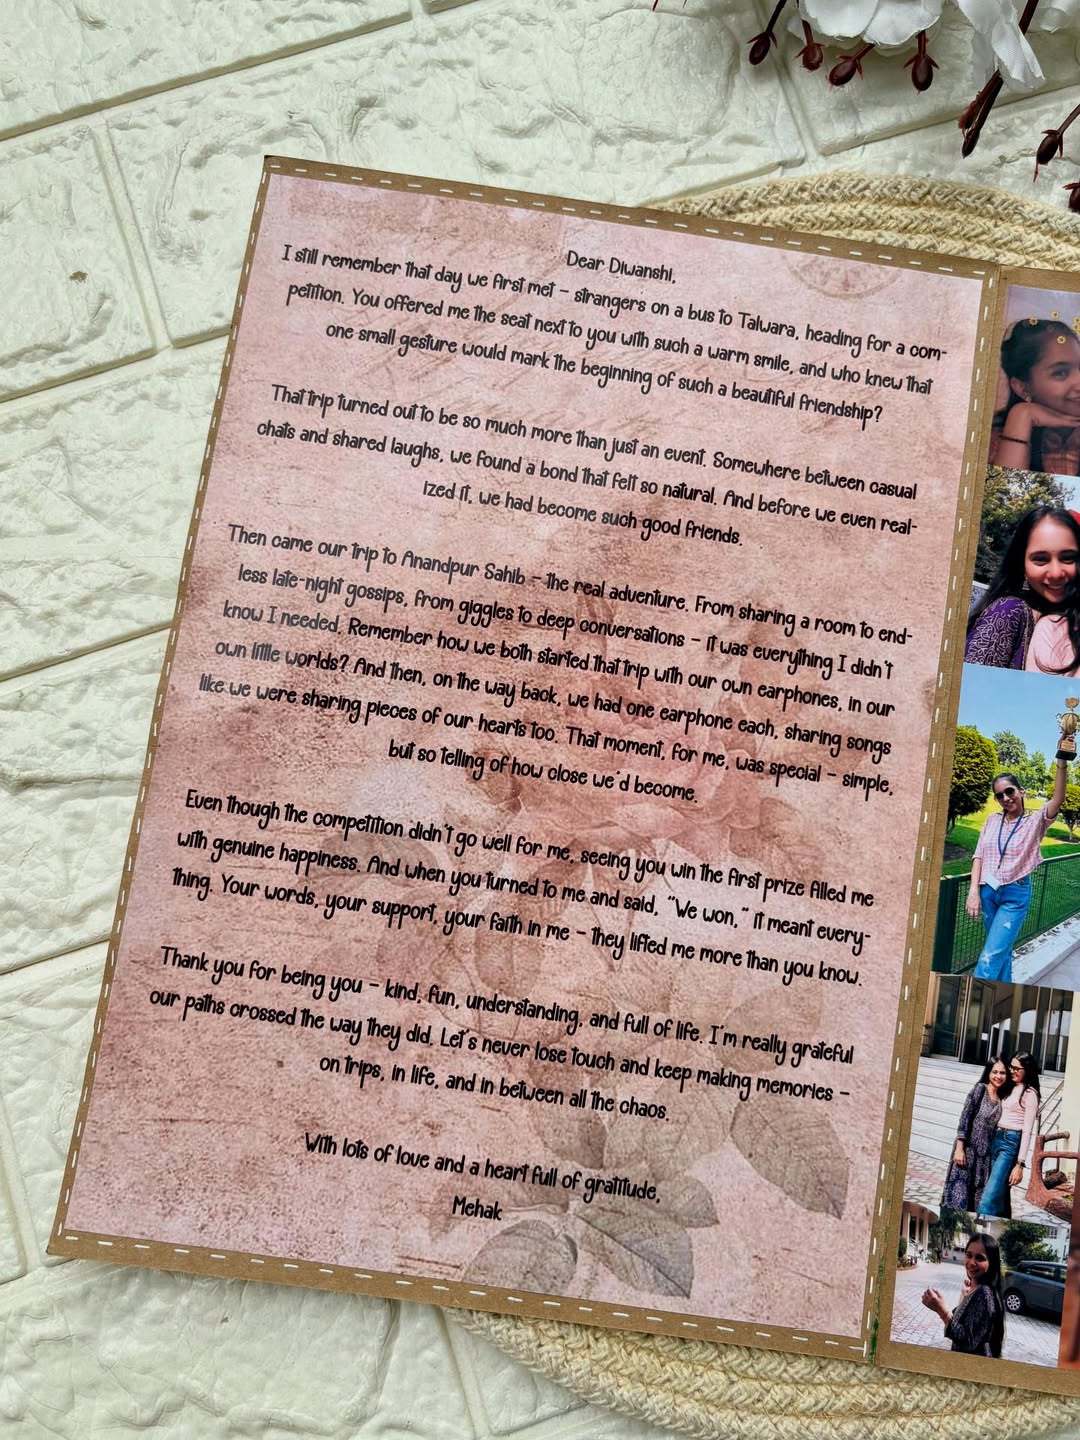 Dear Diwanshi,
I still remember that day we first met – strangers on a bus to Talwara, heading for a com-
petition. You offered me the seat next to you with such a warm smile, and who knew that
one small gesture would mark the beginning of such a beautiful friendship?
That trip turned out to be so much more than just an event. Somewhere between casual
chats and shared laughs, we found a bond that felt so natural. And before we even real-
ized it, we had become such good friends.
Then came our trip to Anandpur Sahib – the real adventure. From sharing a room to end-
less late-night gossips, from giggles to deep conversations – it was everything I didn't
know I needed. Remember how we both started that trip with our own earphones, in our
own little worlds? And then, on the way back, we had one earphone each, sharing songs
like we were sharing pieces of our hearts too. That moment, for me, was special – simple,
but so telling of how close we'd become.
Even though the competition didn't go well for me, seeing you win the first prize filled me
with genuine happiness. And when you turned to me and said, "We won," it meant every-
thing. Your words, your support, your faith in me – they lifted me more than you know.
Thank you for being you – kind, fun, understanding, and full of life. I'm really grateful
our paths crossed the way they did. Let's never lose touch and keep making memories –
on trips, in life, and in between all the chaos.
With lots of love and a heart full of gratitude,
Mehak